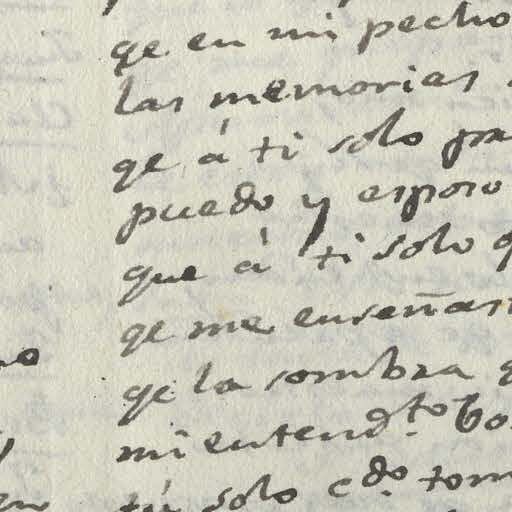 qe en mi pecho
las memorias
qe á ti solo
puedo y esposo
que á ti solo
qe me enseñas
qe la sombra
mi entendto
tú solo cdo tom